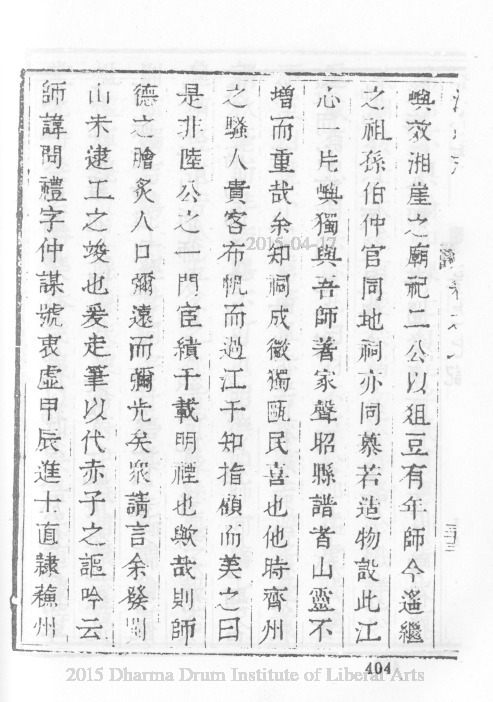 嶼效湘崖之廟祀二公以俎豆有年師今遙繼
之祖孫伯仲官同地祠亦同慕若造物設此江
心一片嶼獨與吾師著家聲昭縣譜者山靈不
增而重哉余知祠成微獨甌民喜也他時齊州
之騷人貴客布帆而過江干知指顧而美之曰
是非陸公之一門宦績千載明禋也歟哉則師
德之膾炙人口彌遠而彌光矣衆請言余發
山未逮工之竣也爰走筆以代赤子之謳吟云
師諱問禮字仲謀號衷虛甲辰進士直隸
州
三十三
404
2015-04-17
2015 Dharma Drum Institute of Liberal Arts